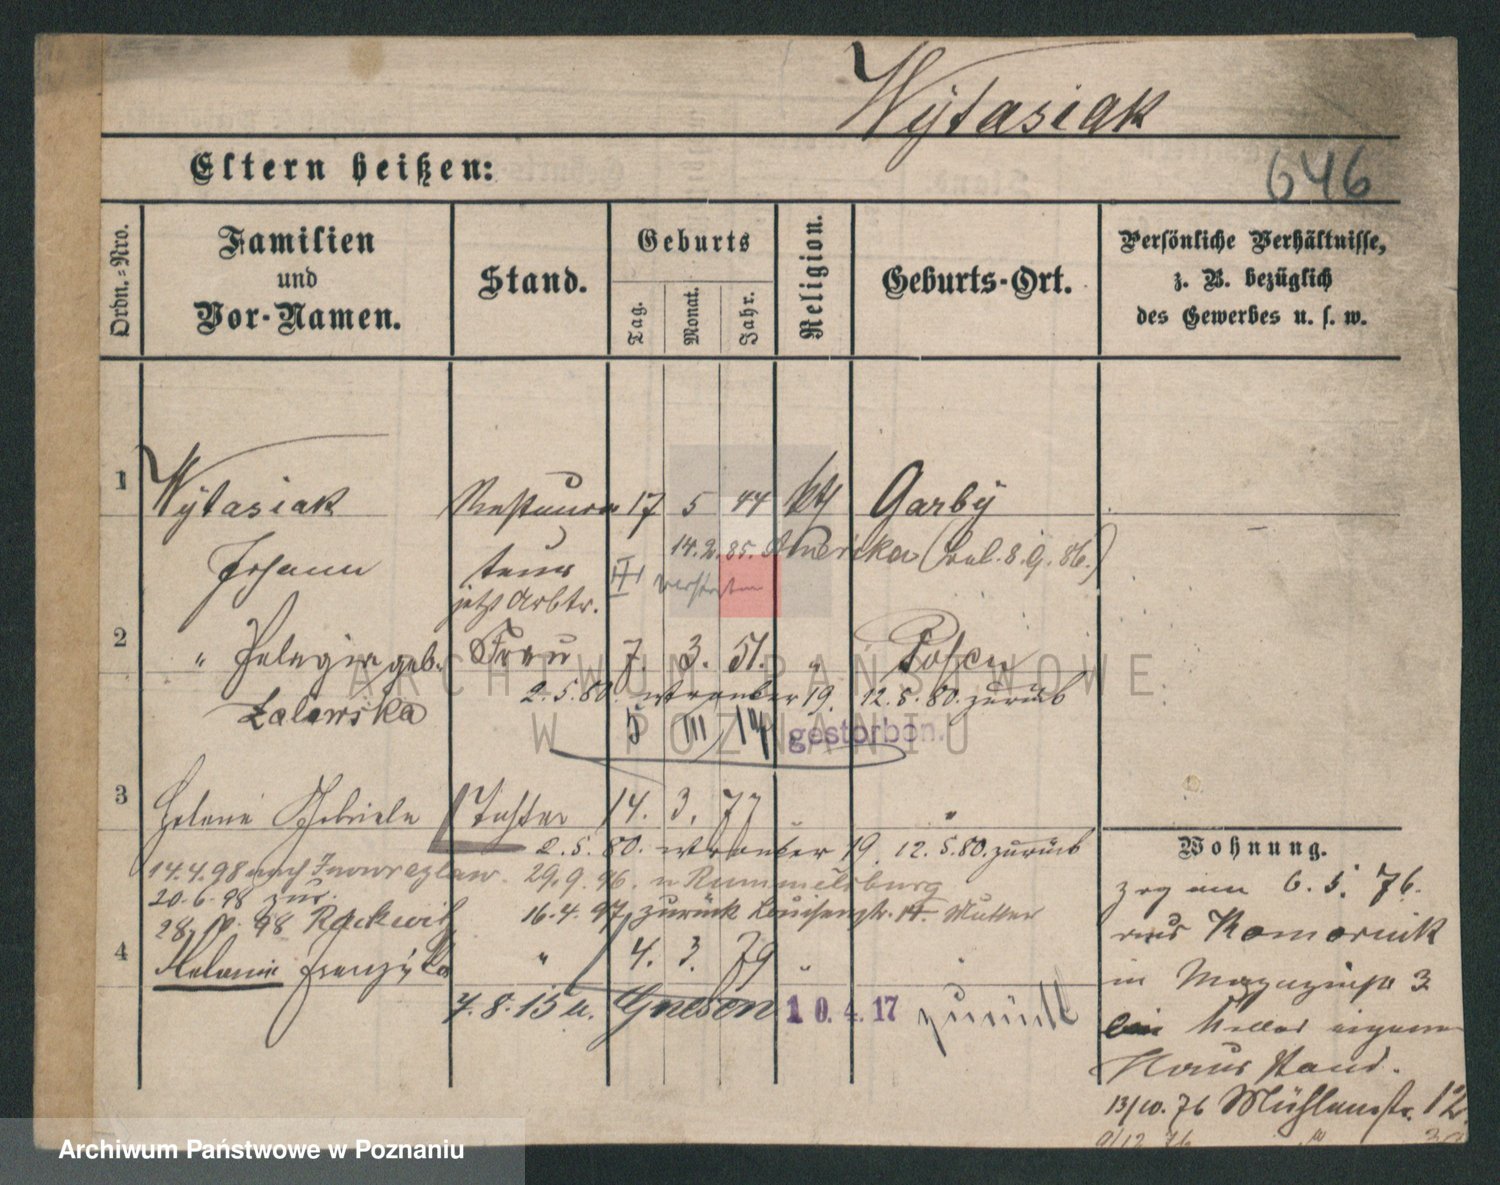 Wÿtasiak
646
Eltern heißen:
Ordn.=Nro.
Familien
und
Vor-Namen.
Stand.
Geburts
Tag.
Monat.
Jahr.
Religion.
Geburts-Ort.
Persönliche Verhältnisse,
z. B. bezüglich
des Gewerbes u. s. w.
1 Wÿtasiak Restaura 17 5 44 kth Garbÿ
14.2.85. Amerika
Johann teur III verstorben
jetzt Arbtr.
2 " Pelagia geb. Frau 7. 3. 51. " Posen
2.5.80. Wronker 19. 12.5.80. zurück
Zalewska
5 III 14 gestorben.
3 Helene Gabriele Tochter 14. 3. 77 "
2.5.80. Wronker 19. 12.5.80. zurück
14.4.98 nach Inowrazlaw 29.9.96. n Rummelsburg
20.6.98 zur.
16.4.97 zurück Louisenstr. Mutter
28. 98 Rackwitz
4 Melanie Franziska " 4. 3. 79 "
7.8.15 u. Gnesen 10.4.17 zurück
Wohnung.
zog am 6.5.76.
aus Komornik
in Magazinstr 3
eigenen
Hausstand.
13/10.76 Mühlenstr. 12
9/12 76 "
ARCHIWUM PAŃSTWOWE
W POZNANIU
Archiwum Państwowe w Poznaniu